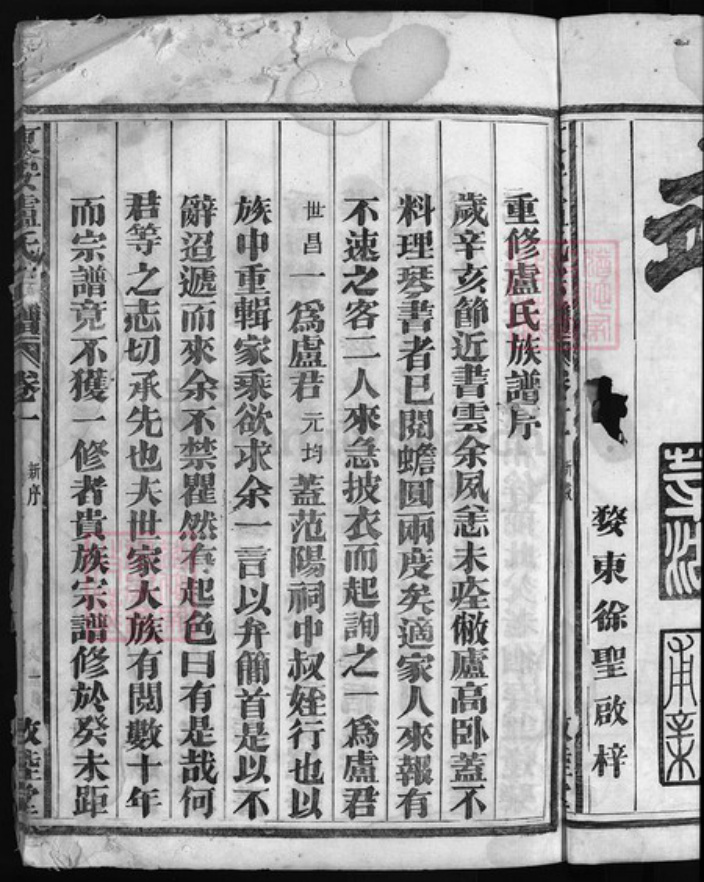 婺東徐聖啟梓
重修盧氏族譜序
歲辛亥節近書雲余夙恙未痊僘廬高卧蓋不
料理琴書者已閱蟾圓兩度矣適家人來報有
不速之客二人來急披衣而起詢之一為盧君
世昌一為盧君元均蓋范陽祠中叔姪行也以
族中重輯家乘欲求余一言以弁簡首是以不
辭迢遞而來余不禁瞿然有起色曰有是哉何
君等之志切承先也夫世家大族有閱數十年
而宗譜竟不獲一修者貴族宗譜修於癸未距
盧氏宗譜 卷一 新序